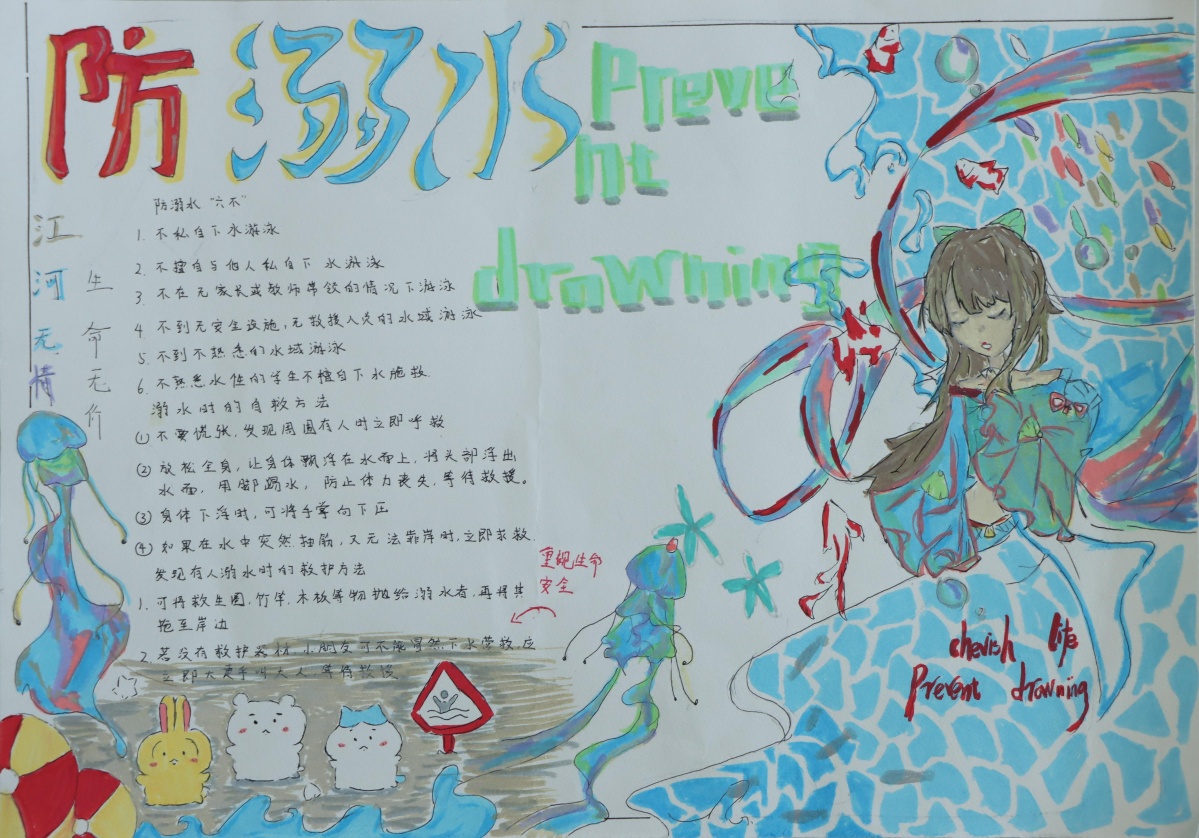 防溺水
Preve
nt
drowning
江河无情
生命无价
防溺水“六不”
1. 不私自下水游泳
2. 不擅自与他人私自下水游泳
3. 不在无家长或教师带领的情况下游泳
4. 不到无安全设施,无救援人员的水域游泳
5. 不到不熟悉的水域游泳
6. 不熟悉水性的学生不擅自下水施救
溺水时的自救方法
① 不要慌张,发现周围有人时立即呼救
② 放松全身,让身体飘浮在水面上,将头部浮出
水面,用脚踢水,防止体力丧失,等待救援。
③ 身体下浮时,可将手掌向下压
④ 如果在水中突然抽筋,又无法靠岸时,立即求救.
发现有人溺水时的救护方法
1. 可将救生圈,竹竿,木板等物抛给溺水者,再将其
拖至岸边
2. 若没有救护器材,小朋友可不能冒然下水营救应
立即大声呼叫大人,等待救援
重视生命
安全
cherish life
Prevent drowning